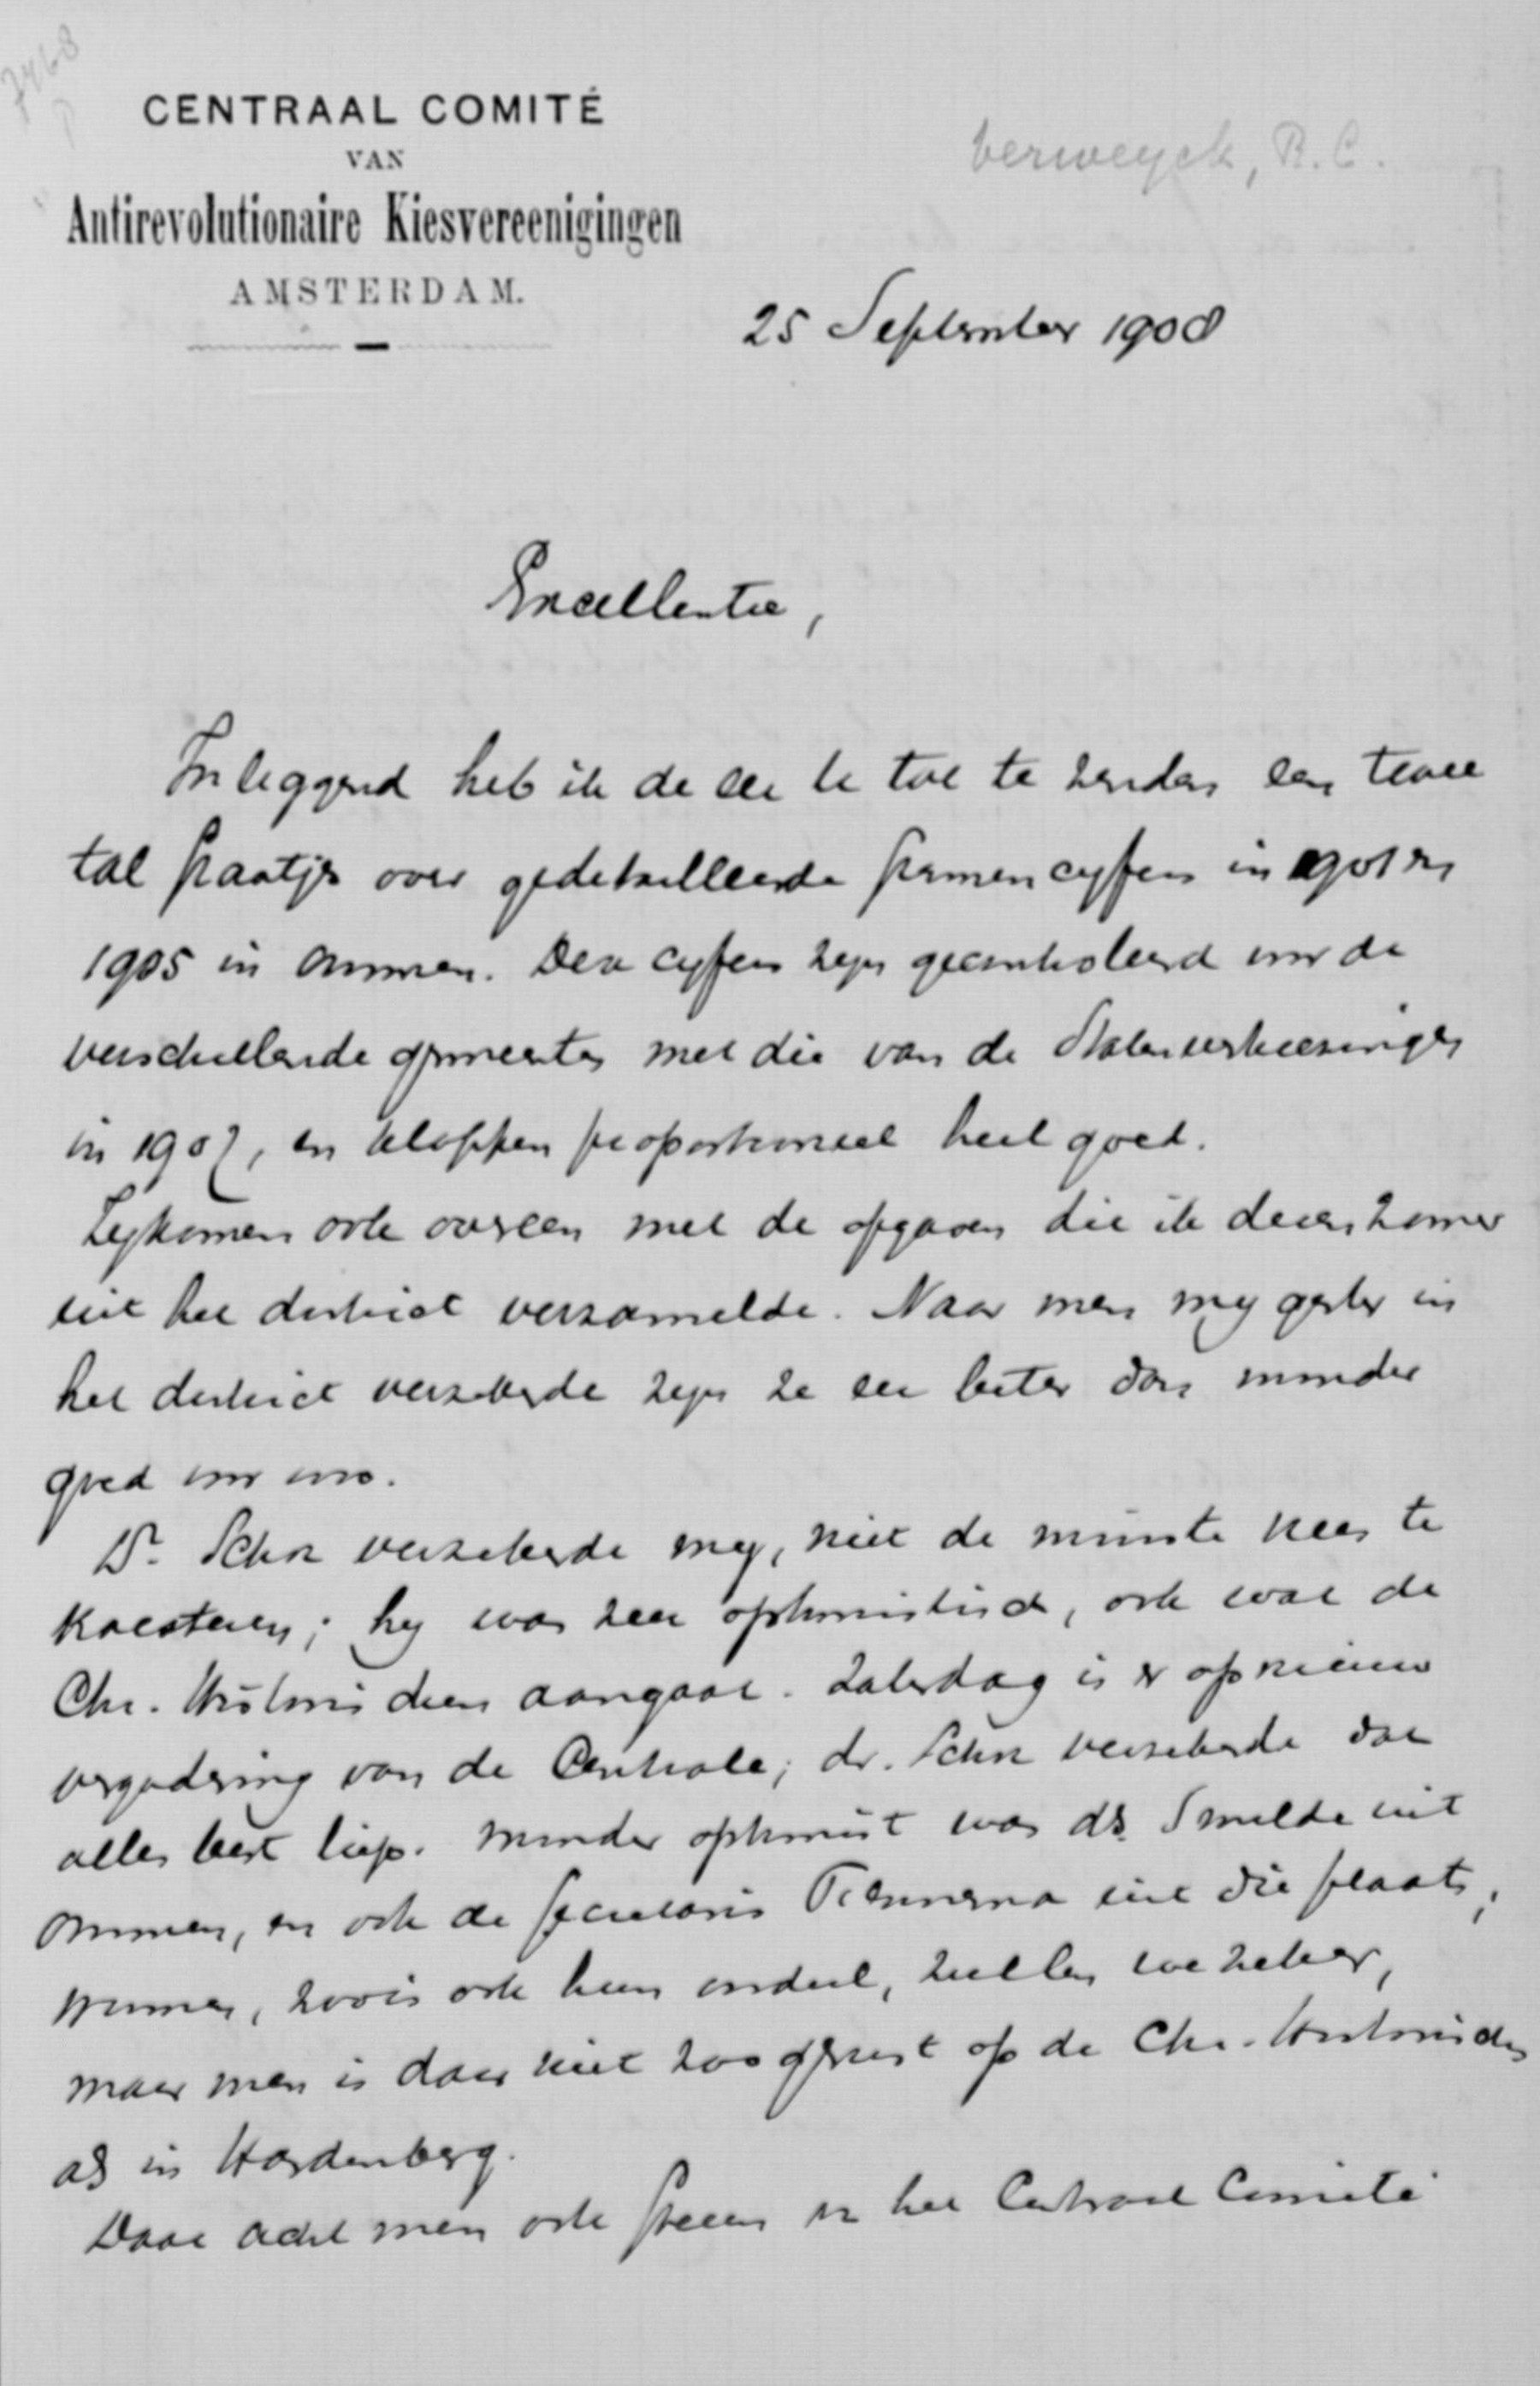 7468
CENTRAAL COMITÉ
VAN
Antirevolutionaire Kiesvereenigingen
AMSTERDAM.
Verweyck, R. C.
25 September 1908
Excellentie,
Inleggend heb ik de eer U toe te zenden een twee
tal staatjes over gedetailleerde stemmencyfers in 1901 en
1905 in Ommen. Deze cyfers zyn gecontroleerd voor de
verschillende gemeenten met die van de Statenverkiezingen
in 1907, en kloppen proportioneel heel goed.
Zy komen ook overeen met de opgaven die ik dezen zomer
uit het district verzamelde. Naar men my gister in
het district verzekerde zyn ze eer beter dan minder
goed voor ons.
Dr. Schok verzekerde my, niet de minste vrees te
koesteren; hy was zeer optimistisch, ook wat de
Chr. Historischen aangaat. Zaterdag is er opnieuw
vergadering van de Centrale; dr. Schok verzekerde dat
alles best liep. Minder optimist was ds. Smelde uit
Ommen, en ook de secretaris uit die plaats;
winnen, zoo is ook hun oordeel, zullen we zeker,
maar men is daar niet zoo gerust op de Chr. Historischen
als in Hardenberg.
Daar acht men ook het Centraal Comité